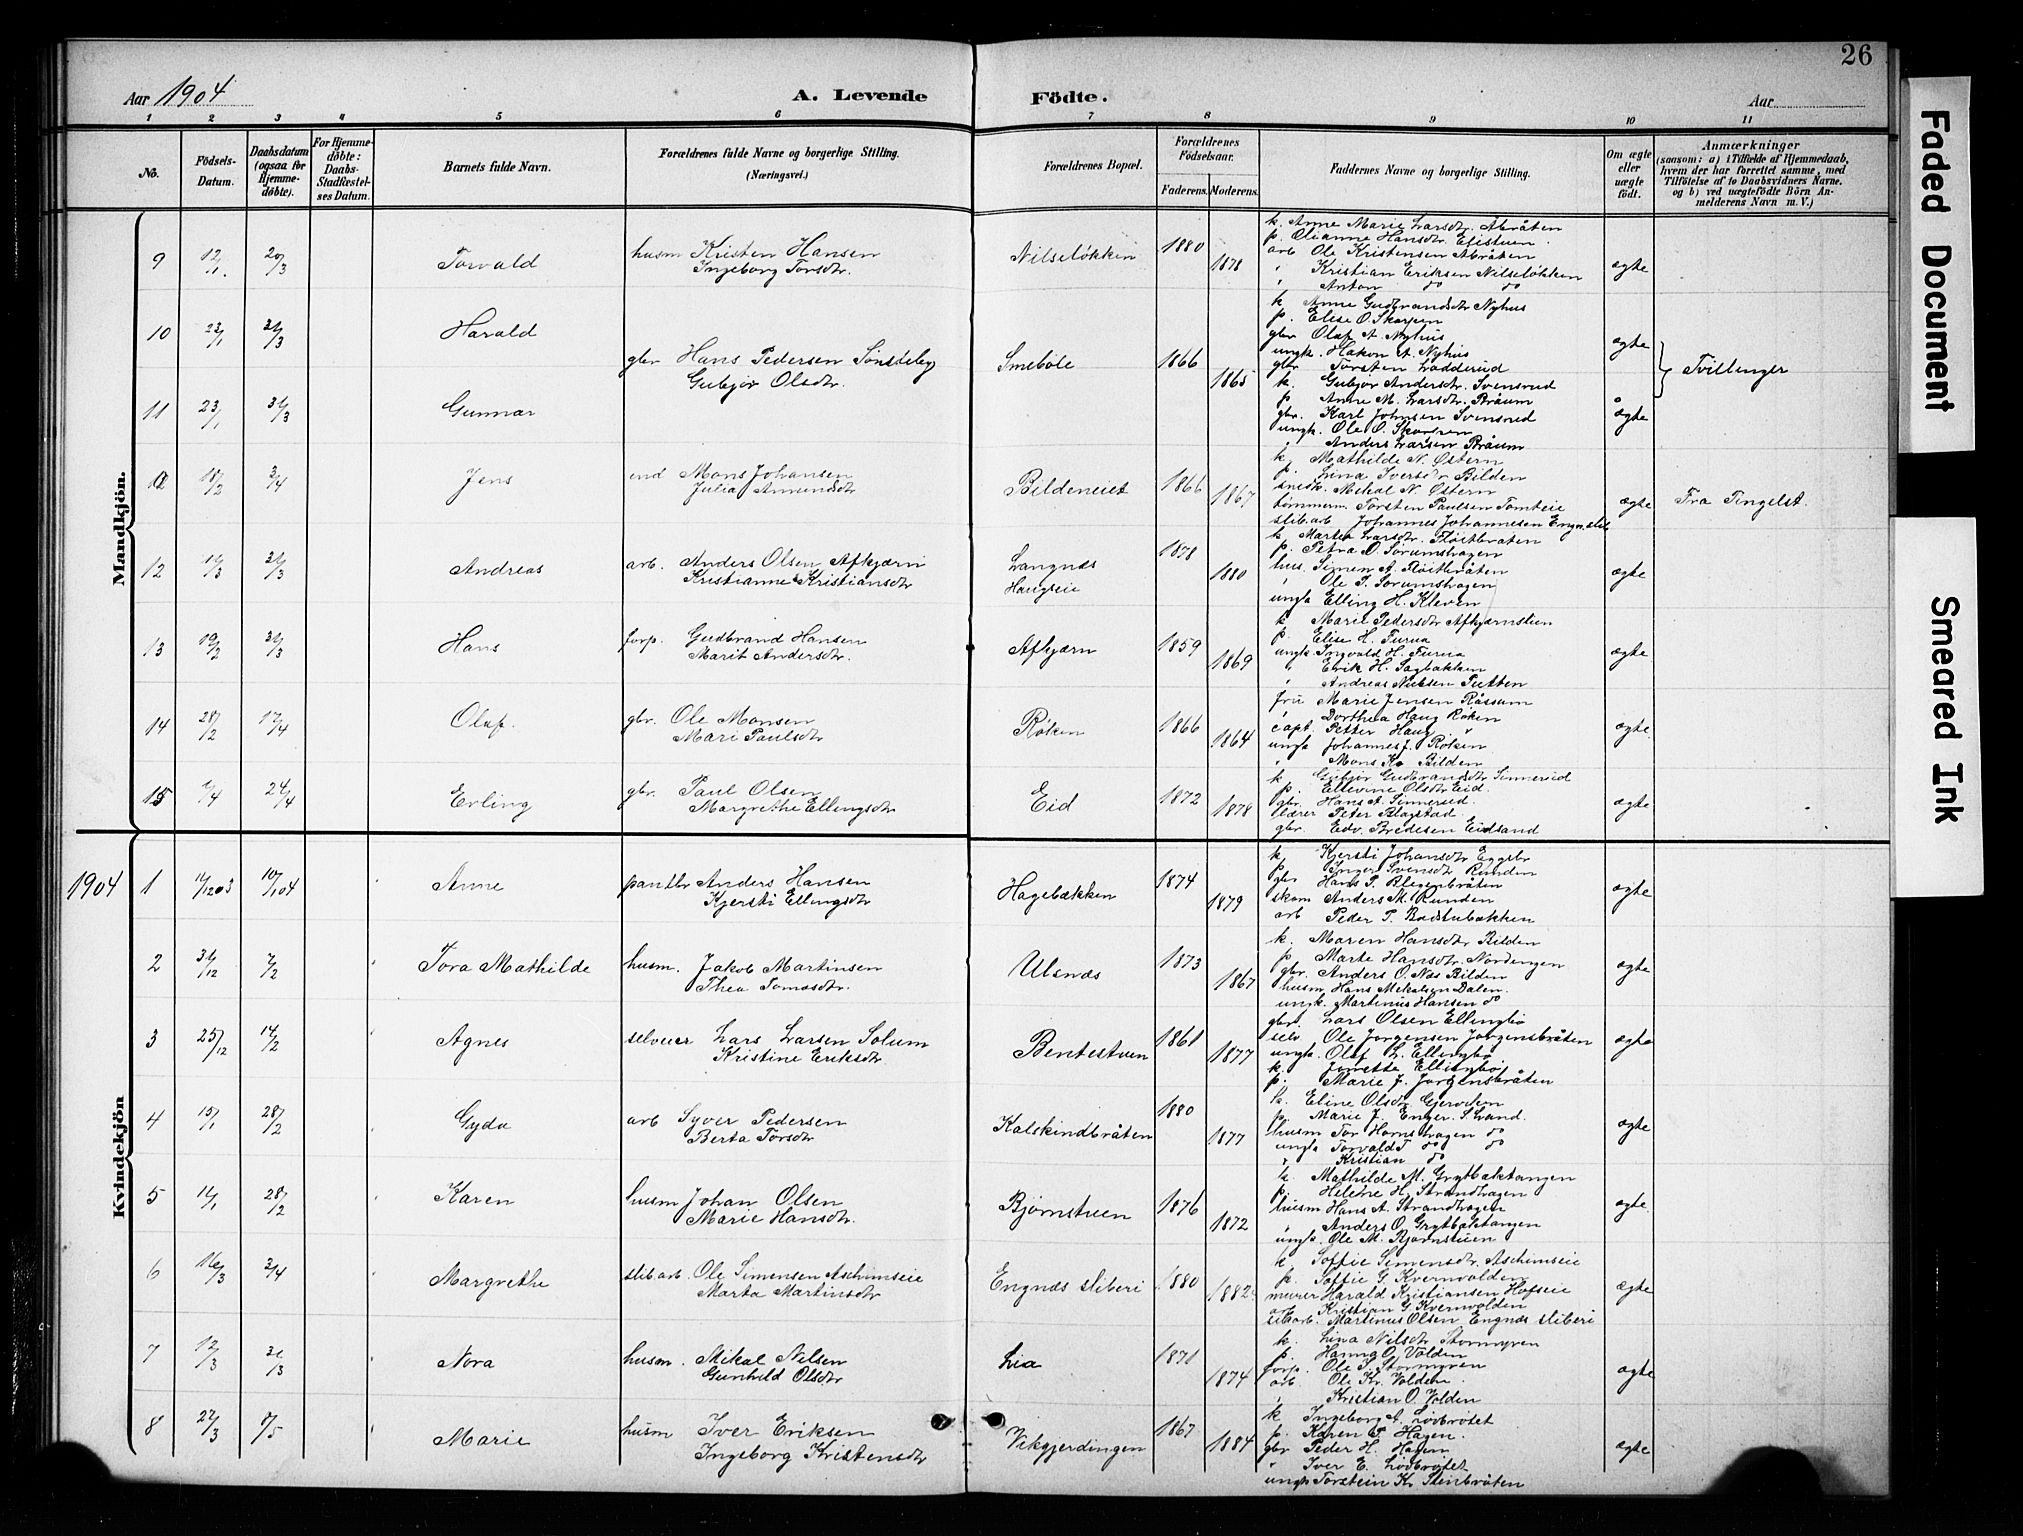 26
Aar 1904
A. Levende
Födte.
Aar
1 2 3 4 5 6 7 8 9 10 11
No.
Födsels-Datum.
Daabsdatum (ogsaa for Hjemmedöbte).
For Hjemmedöbte: Daabs-Stadfestelses Datum.
Barnets fulde Navn.
Forældrenes fulde Navne og borgerlige Stilling. (Næringsvei.)
Forældrenes Bopæl.
Forældrenes Födselsaar.
Faderens.
Moderens.
Faddernes Navne og borgerlige Stilling.
Om ægte eller uægte födt.
Anmærkninger
(saasom: a) i Tilfælde af Hjemmedaab, hvem der har forrettet samme, med Tilföielse af to Daabsvidners Navne, og b) ved uægtefödte Börn Anmelderens Navn m. V.)
Mandkjön.
9 12/1. 20/3 Torvald
husm Kristen Hansen
Ingeborg Torsdtr.
Nilseløkken 1880 1878
k. Anne Marie Larsdtr. Abråten
p. Olianne Hansdtr. Elistuen.
arb Ole Kristensen Abråten
" Kristian Eriksen Nilseløkken
" Anton do do
ægte
10 23/1 31/3 Harald
gbr Hans Pedersen Sønsteby
Gubjør Olsdtr.
Smebøle 1866 1865
k. Anne Gudbrandsdtr Nyhus
p. Elise O. Skarpen
gbr Olaf A. Nyhus
ungk. Håkon A. Nyhus
gbr Torsten Lodderud
ægte
Tvillinger
11 23/1 31/3 Gunnar
k. Gubjør Andersdtr. Svensrud
p Anne M. Larsdtr. Bråum
gbr. Karl Johnsen Svensrud
ungk. Ole O. Skarpen
" Anders Larsen Bråum
ægte
18/2 3/4 Jens
ind Mons Johansen
Julia Amundsdtr
Bildeneiet 1866 1867
k. Mathilde N. Østern
p. Lina Iversdtr Bilden
snedk. Mikal N. Østern
tømmerm Torsten Paulsen Tomteie
slib.arb Johannes Johannesen Engn.slib
ægte
Fra Tingelst.
12 11/3 31/3 Andreas
arb. Anders Olsen Afkjærn
Kristianne Kristiansdtr
Langnæs
Haugseie
1878 1880
k. Marta Larsdtr. Fløitbråten
p. Petra O. Sørumshagen
hus. Simen A. Fløitbråten
" Ole P. Sørumshagen
ungk Elling H. Kleven
ægte
13 19/2 31/3 Hans
forp. Gudbrand Hansen
Marit Andersdtr.
Afkjærn 1859 1869
k Marie Pedersdtr Afkjærnstien
p. Elise H. Furua
ungk. Ingvald H. Furua
" Erik H. Sagbakken
" Andreas Nielsen Putten
ægte
14 28/2 17/4 Olaf.
gbr. Ole Monsen
Mari Paulsdtr
Røken 1866 1864
fru Marie Jensen Råssum
" Dorthea Haug Røken
capt. Petter Haug "
ungk Johannes J. Røken
" Mons K. Bilden
ægte.
15 1/4 24/4 Erling
gbr. Paul Olsen
Margrethe Ellingsdtr
Eid 1872 1878
k. Gubjør Gudbrandsdtr Sinnerud
p. Ellevine Olsdtr Eid.
gbr. Hans A. Sinnerud.
lærer Peter Blagstad.
gbr. Edv. Bredesen Eidsand
ægte
1904
Kvindekjön
1 11/12 03 10/1 04 Anne
pantbr Anders Hansen
Kjersti Ellingsdtr
Hagebækken 1874 1879
k Kjersti Johansdtr Eggebr
p. Inger Svensdtr Runden
gbr Hans P. Blegenbråten
skom Anders M. Runden
arb Peder P. Badstubækken
ægte
2 31/12 7/2 Tora Mathilde
husm. Jakob Martinsen
Thea Tomasdtr.
Ulsnæs 1873 1867
k. Maren Hansdtr. Bilden
p Marte Hansdtr. Nordengen
gbr. Anders O. Næs Bilden
husm Hans Mikalsen Dalen
ungk. Martinus Hansen do
ægte
3 25/12 14/2 Agnes
selveier Lars Larsen Solum
Kristine Eriksdtr
Bentestuen 1861 1877
gbr. Lars Olsen Ellingbø
selv. Ole Jørgensen Jørgensbråten
ungk. Olaf L. Ellingbø
k. Jorette Ellingbø
p. Marie J. Jørgensbråten
ægte
4 15/1 28/2 Gyda
arb Syver Pedersen
Berta Torsdtr
Kalskindbråten 1880 1877
k. Eline Olsdtr Gjerodem
p. Marie J. Enger. S. Land.
husm Tor Hornshagen do
ungk Torvald T do do
" Kristian do
ægte
5 11/1 28/2 Karen
husm Johan Olsen
Marie Hansdtr.
Bjørnstuen 1876 1872
k. Mathilde M. Grytbaktangen
p. Helene H. Strandhagen
husm Hans A. Strandhagen
" Anders O. Grytbaktangen
ungk. Ole M. Bjørnstuen
ægte
6 16/3 3/4 Margrethe
slib.arb. Ole Simensen Aschimseie
Marta Martinsdtr
Engnæs sliberi 1880 1882
k Soffie Simensdtr. Aschimseie
p. Soffie G. Kvernvolden
murer Harald Kristiansen Hofseie
arb. Kristian G. Kvernvolden
slib.arb. Martinus Olsen Engnæs sliberi
ægte
7 12/3 31/3 Nora
husm. Mikal Nilsen
Gunhild Olsdtr.
Lia 1871 1874
k. Lina Nilsdtr Stormyren
p. Hanna O. Volden
forp. Ole S. Stormyren
arb Ole Kr. Volden.
" Kristian O. Volden
ægte
8 27/3 8/5 Marie
husm Iver Eriksen
Ingeborg Kristensdtr
Vikgjerdingen 1867 1884
k Ingeborg A. Lødbrøtet
p. Karen P. Hagen.
gbr Peder H. Hagen
" Iver E. Lødbrøtet
ungk Torstein Kr. Stenbråten
ægte
Faded Document
Smeared Ink